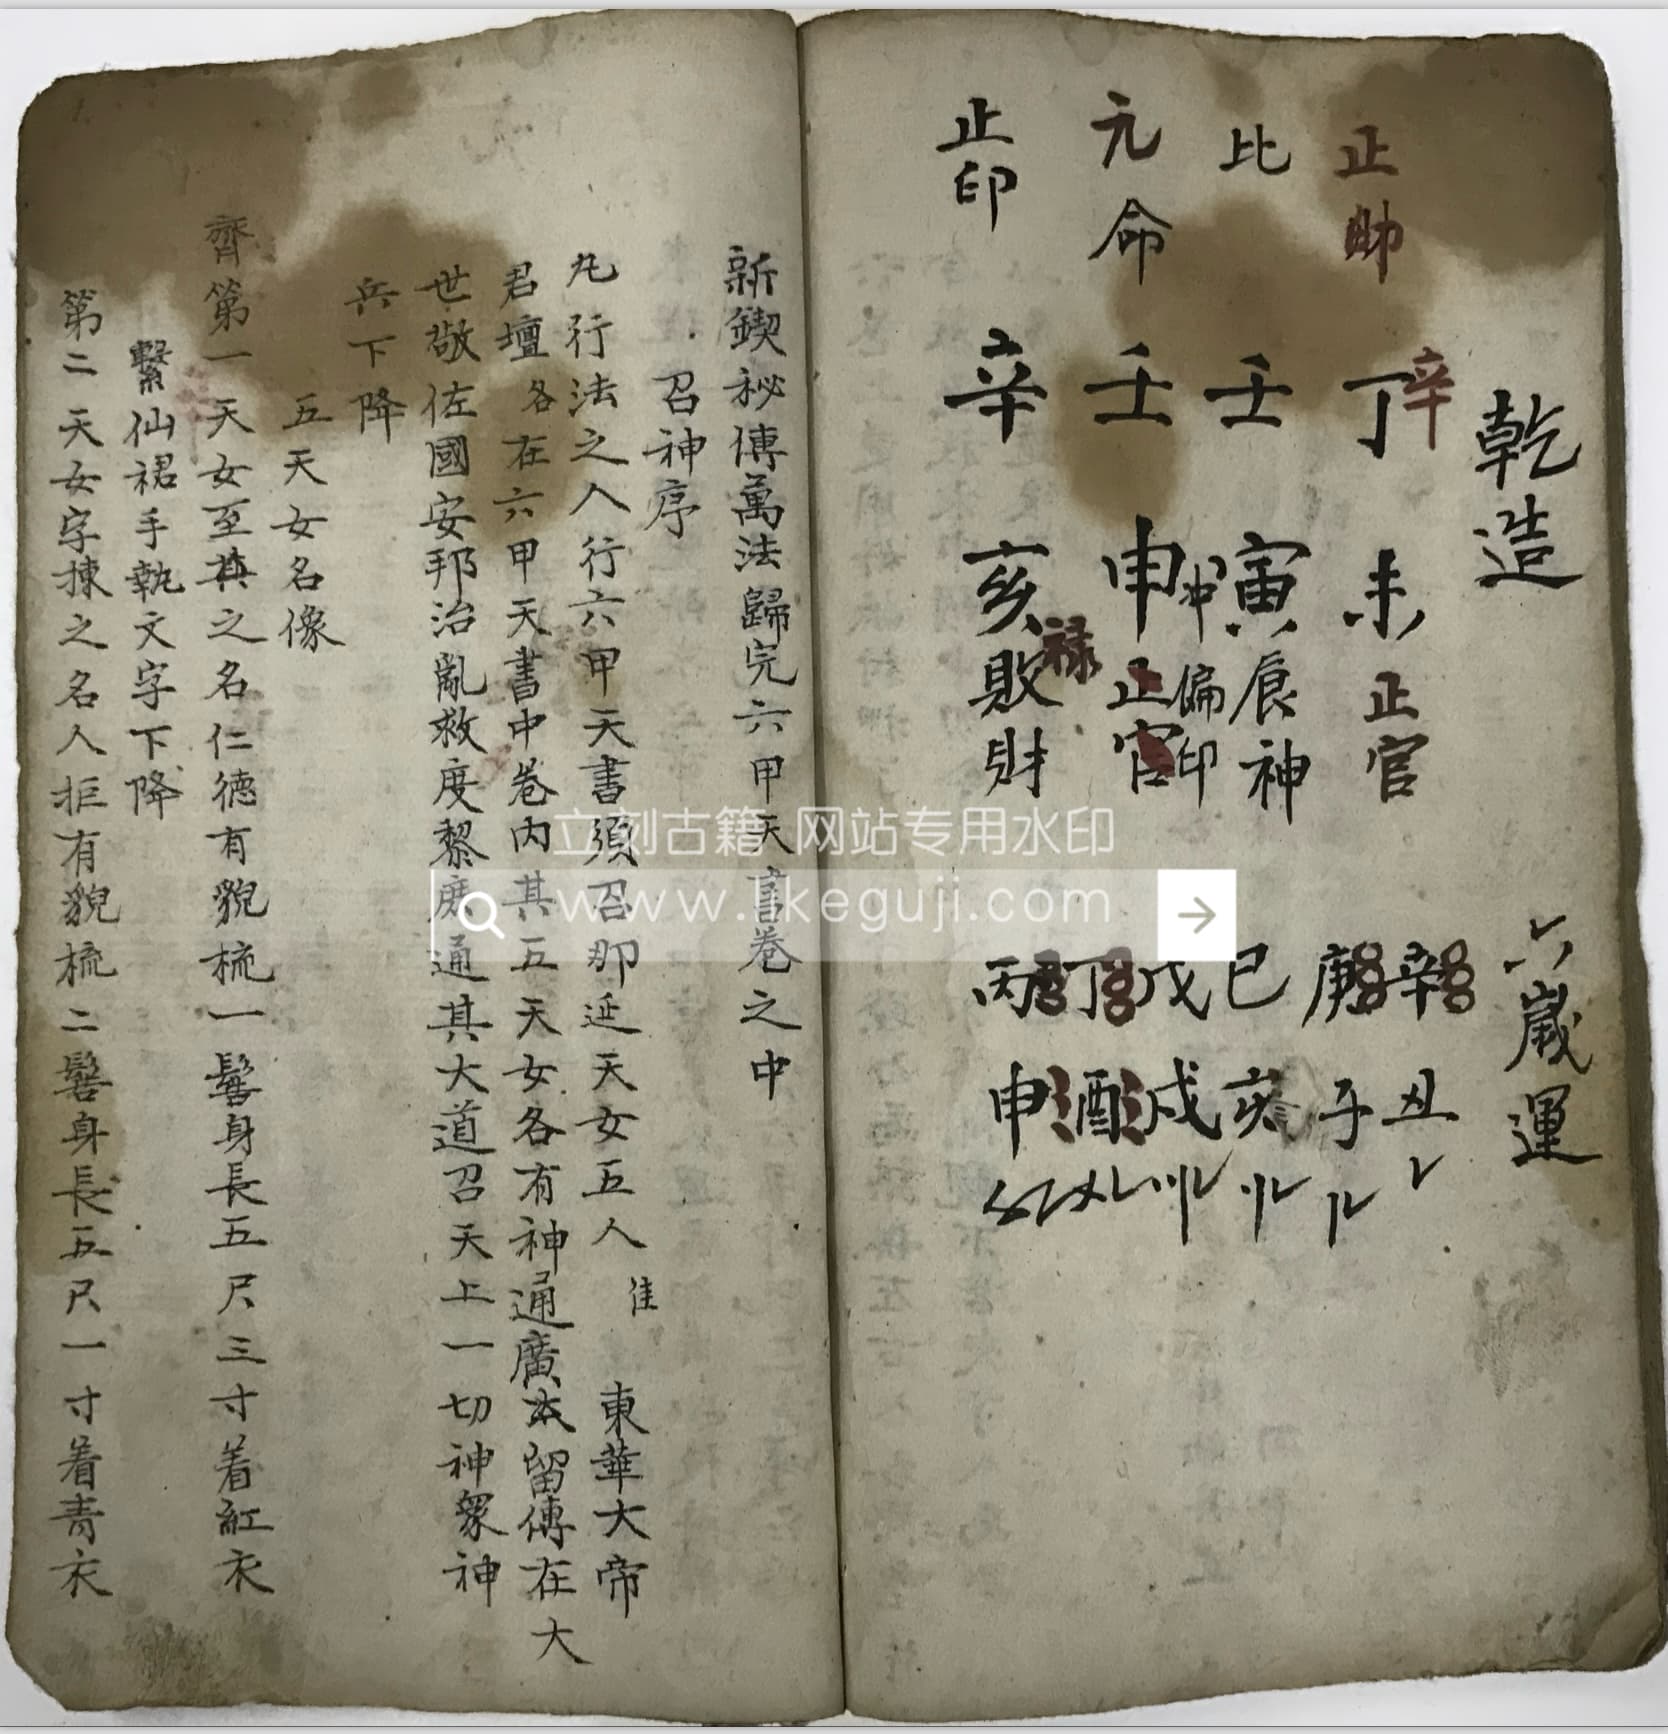 乾造
正財 丁 辛 未 正官
比 壬 寅 辰神
冲 偏印
元命 壬 申 正官
正印 辛 亥 敗財
禄
六歲運
辛丑
庚子
已亥
戊戌
丁酉
丙申
新鍥秘傳萬法歸完六甲天書卷之中
召神序
凡行法之人行六甲天書須召那延天女五人 隹 東華大帝
君壇各在六甲天書中卷內其五天女各有神通廣本留傳在大
世敬佐國安邦治亂救度黎庶通其大道召天上一切神眾神
兵下降
五天女名像
齊第一天女至真之名仁德有貌梳一髻身長五尺三寸着紅衣
繫仙裙手執文字下降
第二天女字揀之名人拒有貌梳二髻身長五尺一寸着青衣
立刻古籍 网站专用水印
www.lkeguji.com